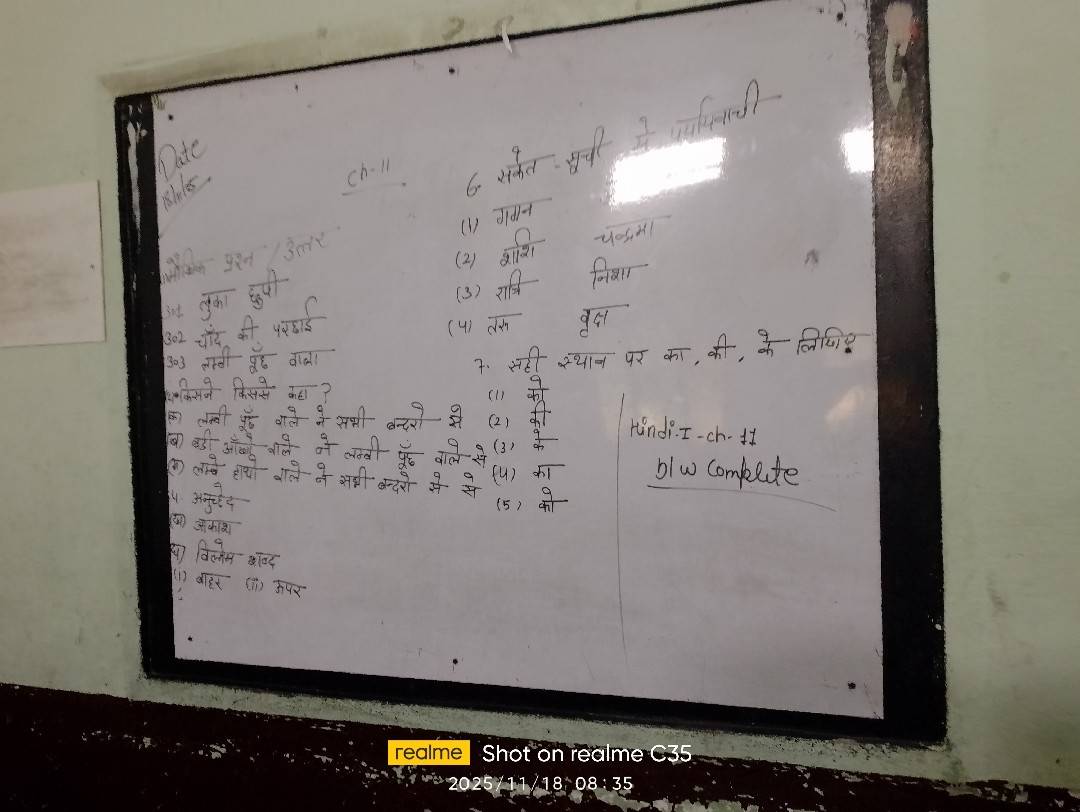 Date
18/11/25
ch-11
मौखिक प्रश्न / उत्तर
उ०1 लुका छुपी
उ०2 चाँद की परछाई
उ०3 लम्बी पूँछ वाला
किसने किससे कहा?
(क) लम्बी पूँछ वाले ने सभी बन्दरो से
(ख) बड़ी आँखो वाले ने लम्बी पूँछ वाले से
(ग) लम्बे हाथो वाले ने सभी बन्दरो से से
अनुच्छेद
(ख) आकाश
विलोम शब्द
(i) बाहर (ii) ऊपर
6. संकेत - सूची से पर्यायवाची
(1) गगन
(2) शशि चन्द्रमा
(3) रात्रि निशा
(4) तरु वृक्ष
7. सही स्थान पर का, की, के लिखिए
(1) को
(2) की
(3) के
(4) का
(5) को
Hindi-I-ch-11
b/w Complete
realme Shot on realme C35
2025/11/18 08:35